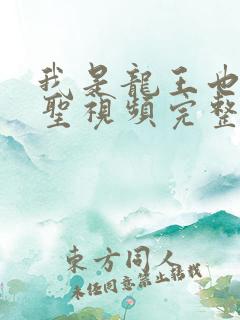 我是龍王也
聖視頻完整
東方同人
未經同意禁止轉載